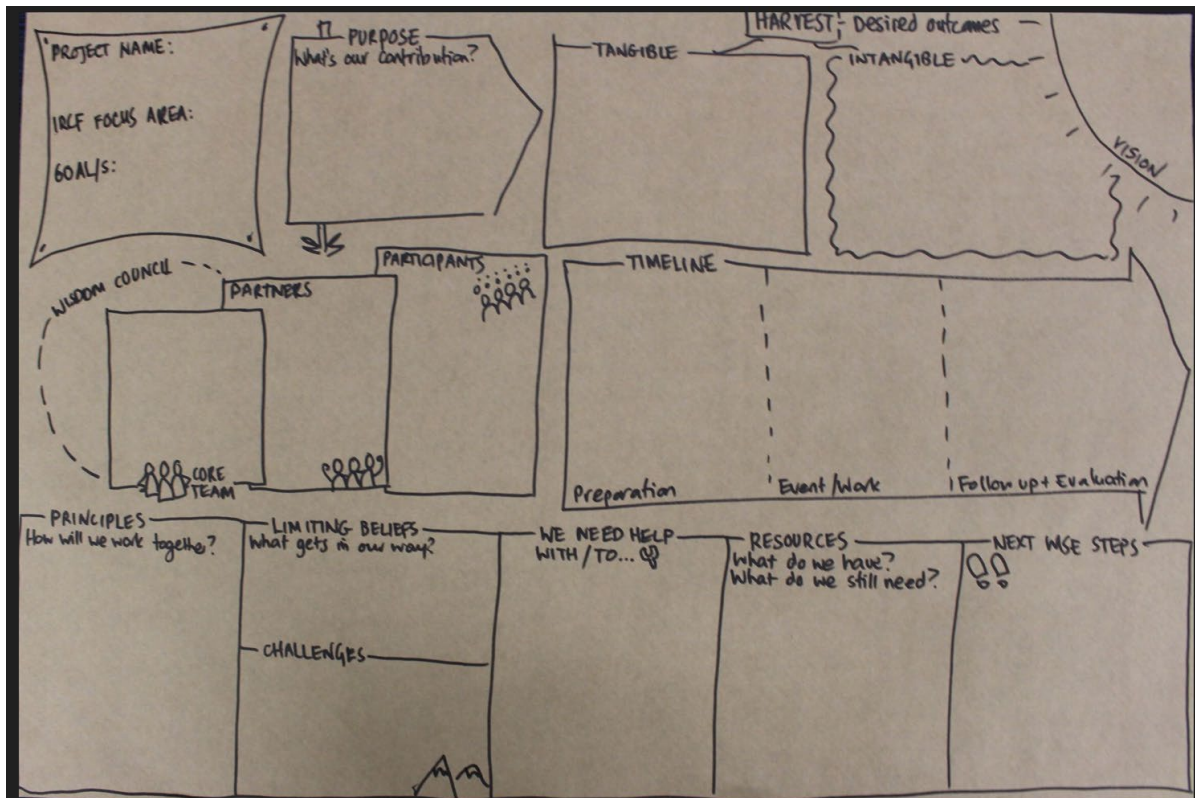 PROJECT NAME:
IRCF FOCUS AREA:
GOAL/S:
PURPOSE
What's our contribution?
HARVEST: Desired outcomes
TANGIBLE
INTANGIBLE
VISION
WISDOM COUNCIL
PARTNERS
PARTICIPANTS
CORE
TEAM
TIMELINE
Preparation
Event/Work
Follow up + Evaluation
PRINCIPLES
How will we work together?
LIMITING BELIEFS
What gets in our way?
CHALLENGES
WE NEED HELP
WITH / TO...
RESOURCES
What do we have?
What do we still need?
NEXT WISE STEPS